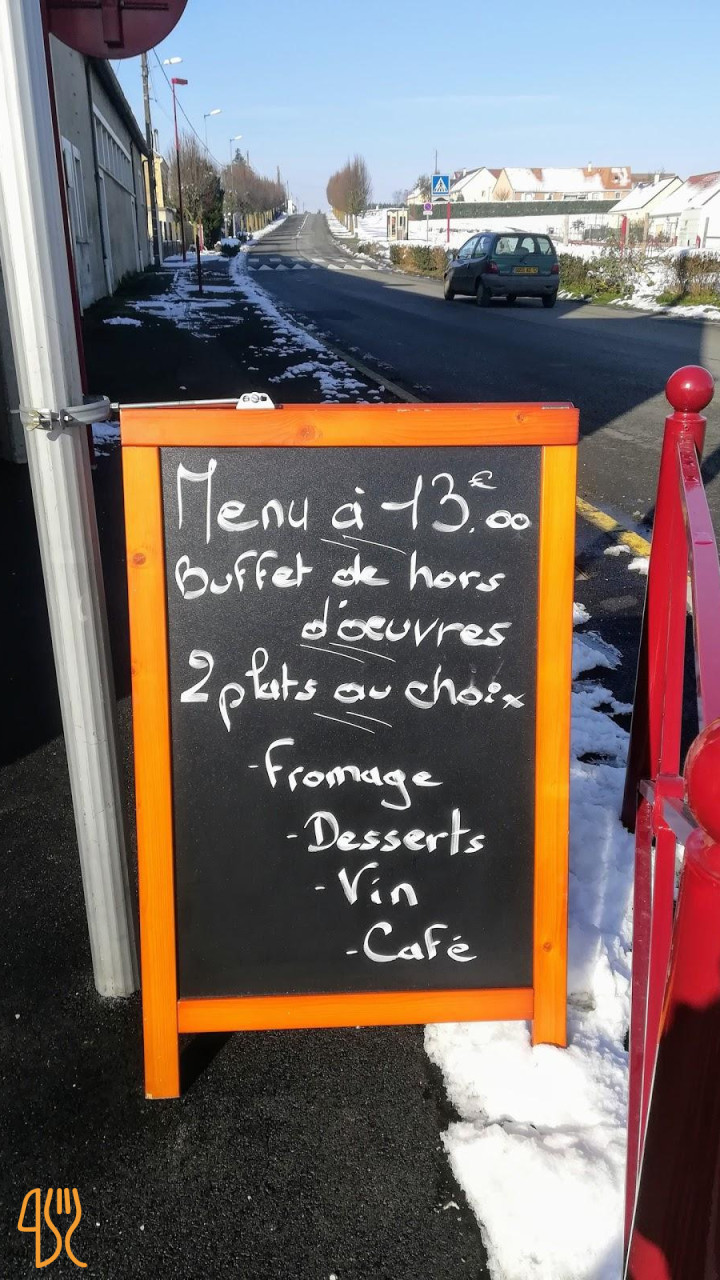 Menu à 13,00€
Buffet de hors
d'œuvres
2 plats au choix
-Fromage
-Desserts
-Vin
-Café